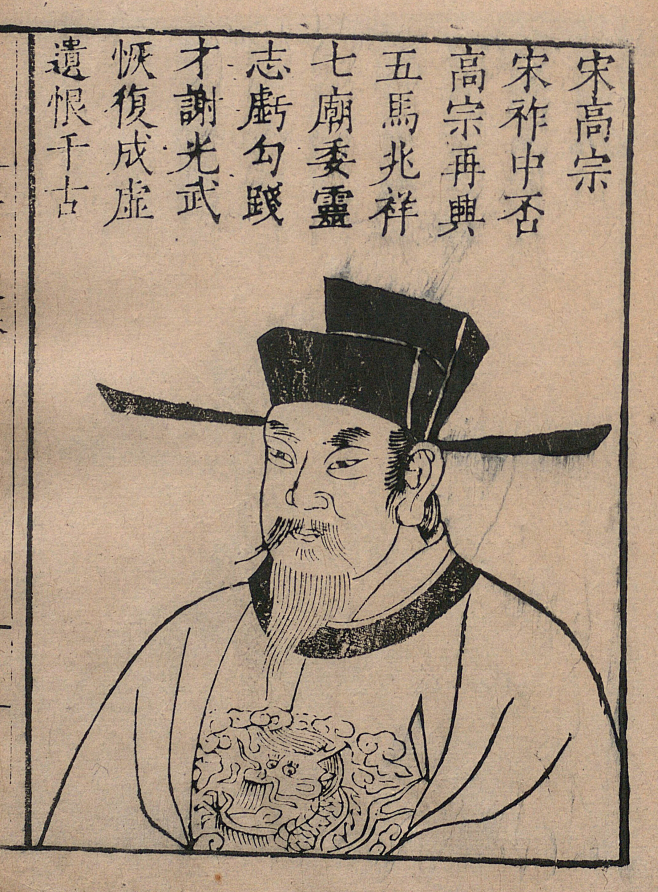 宋高宗
宋祚中否
高宗再興
五馬兆祥
七廟委靈
志虧勾踐
才謝光武
恢復成虛
遺恨千古